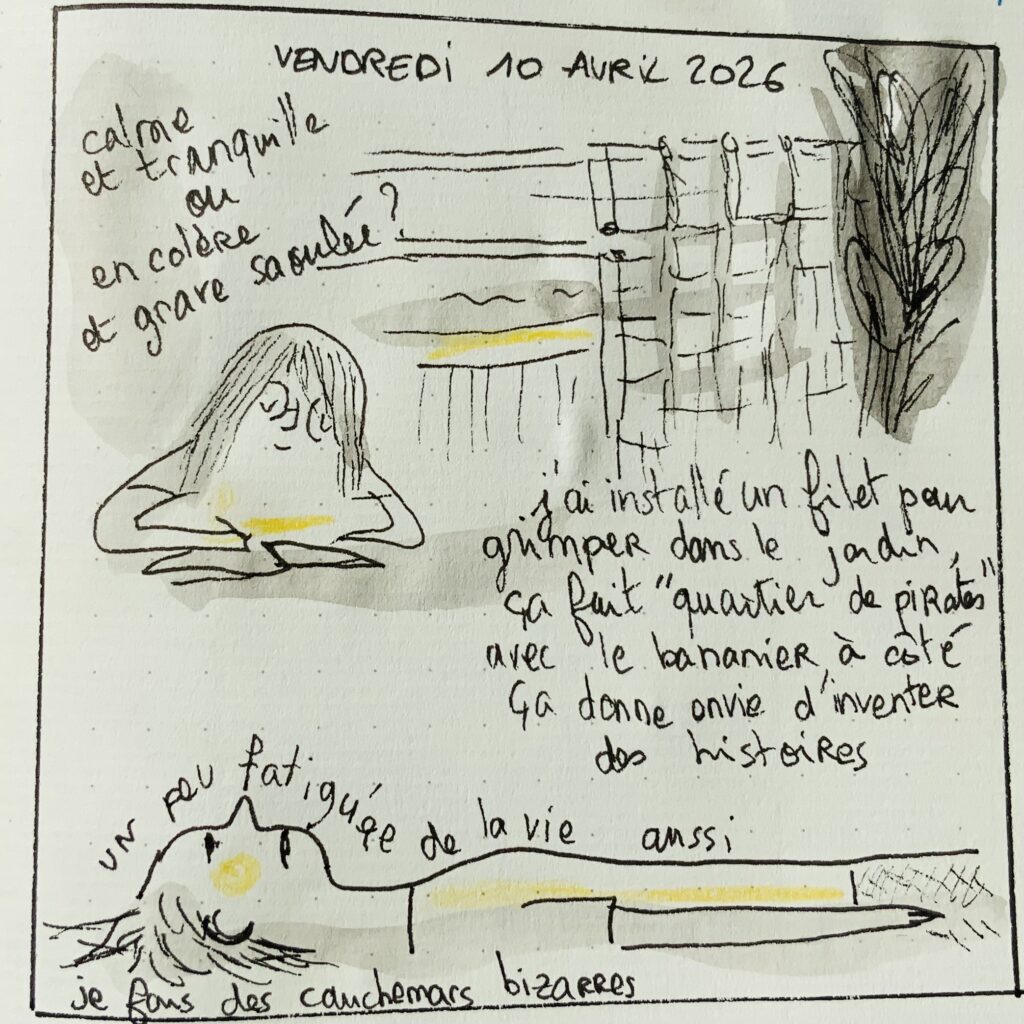 VENDREDI 10 AVRIL 2026
calme
et tranquille
ou
en colère
et grave saoulée ?
j'ai installé un filet pour
grimper dans le jardin,
ça fait "quartier de pirates"
avec le bananier à côté
ça donne envie d'inventer
des histoires
un peu fatiguée de la vie aussi
je fais des cauchemars bizarres